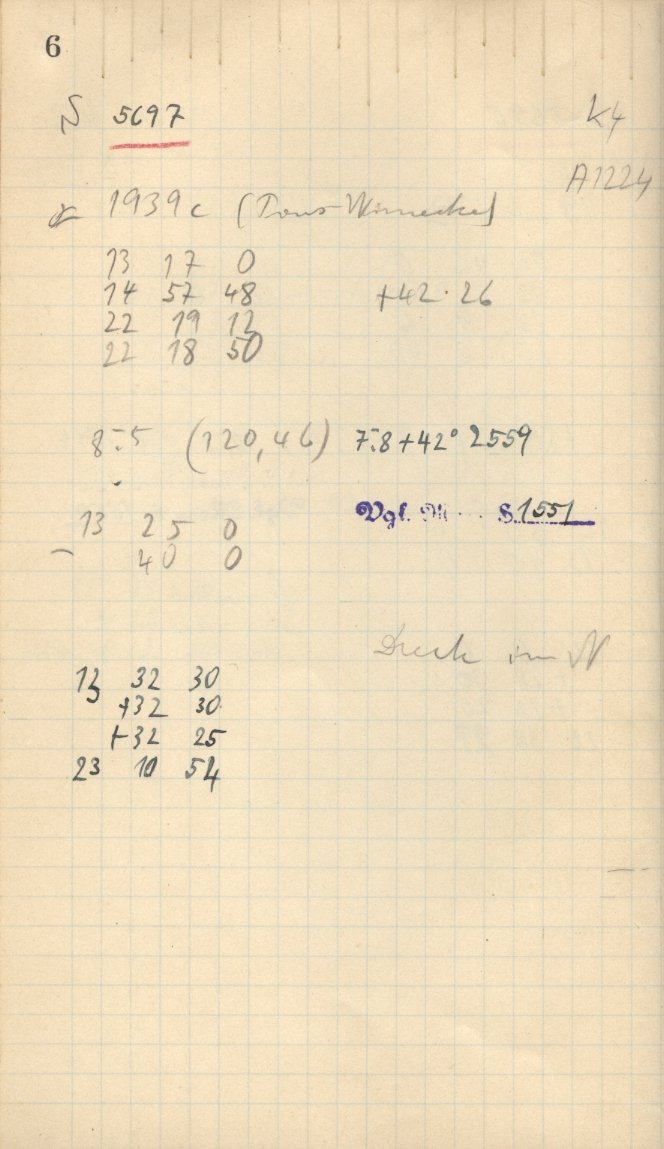 6
S 5697
K4
A1224
1939c (Pons-Winnecke)
13 17 0
14 57 48 +42.26
22 19 12
22 18 50
8.5 (120,46) 7.8+42° 2559
Vgl. S. 1551
13 25 0
– 40 0
Druck im N
13 32 30
+32 30
+32 25
23 10 54